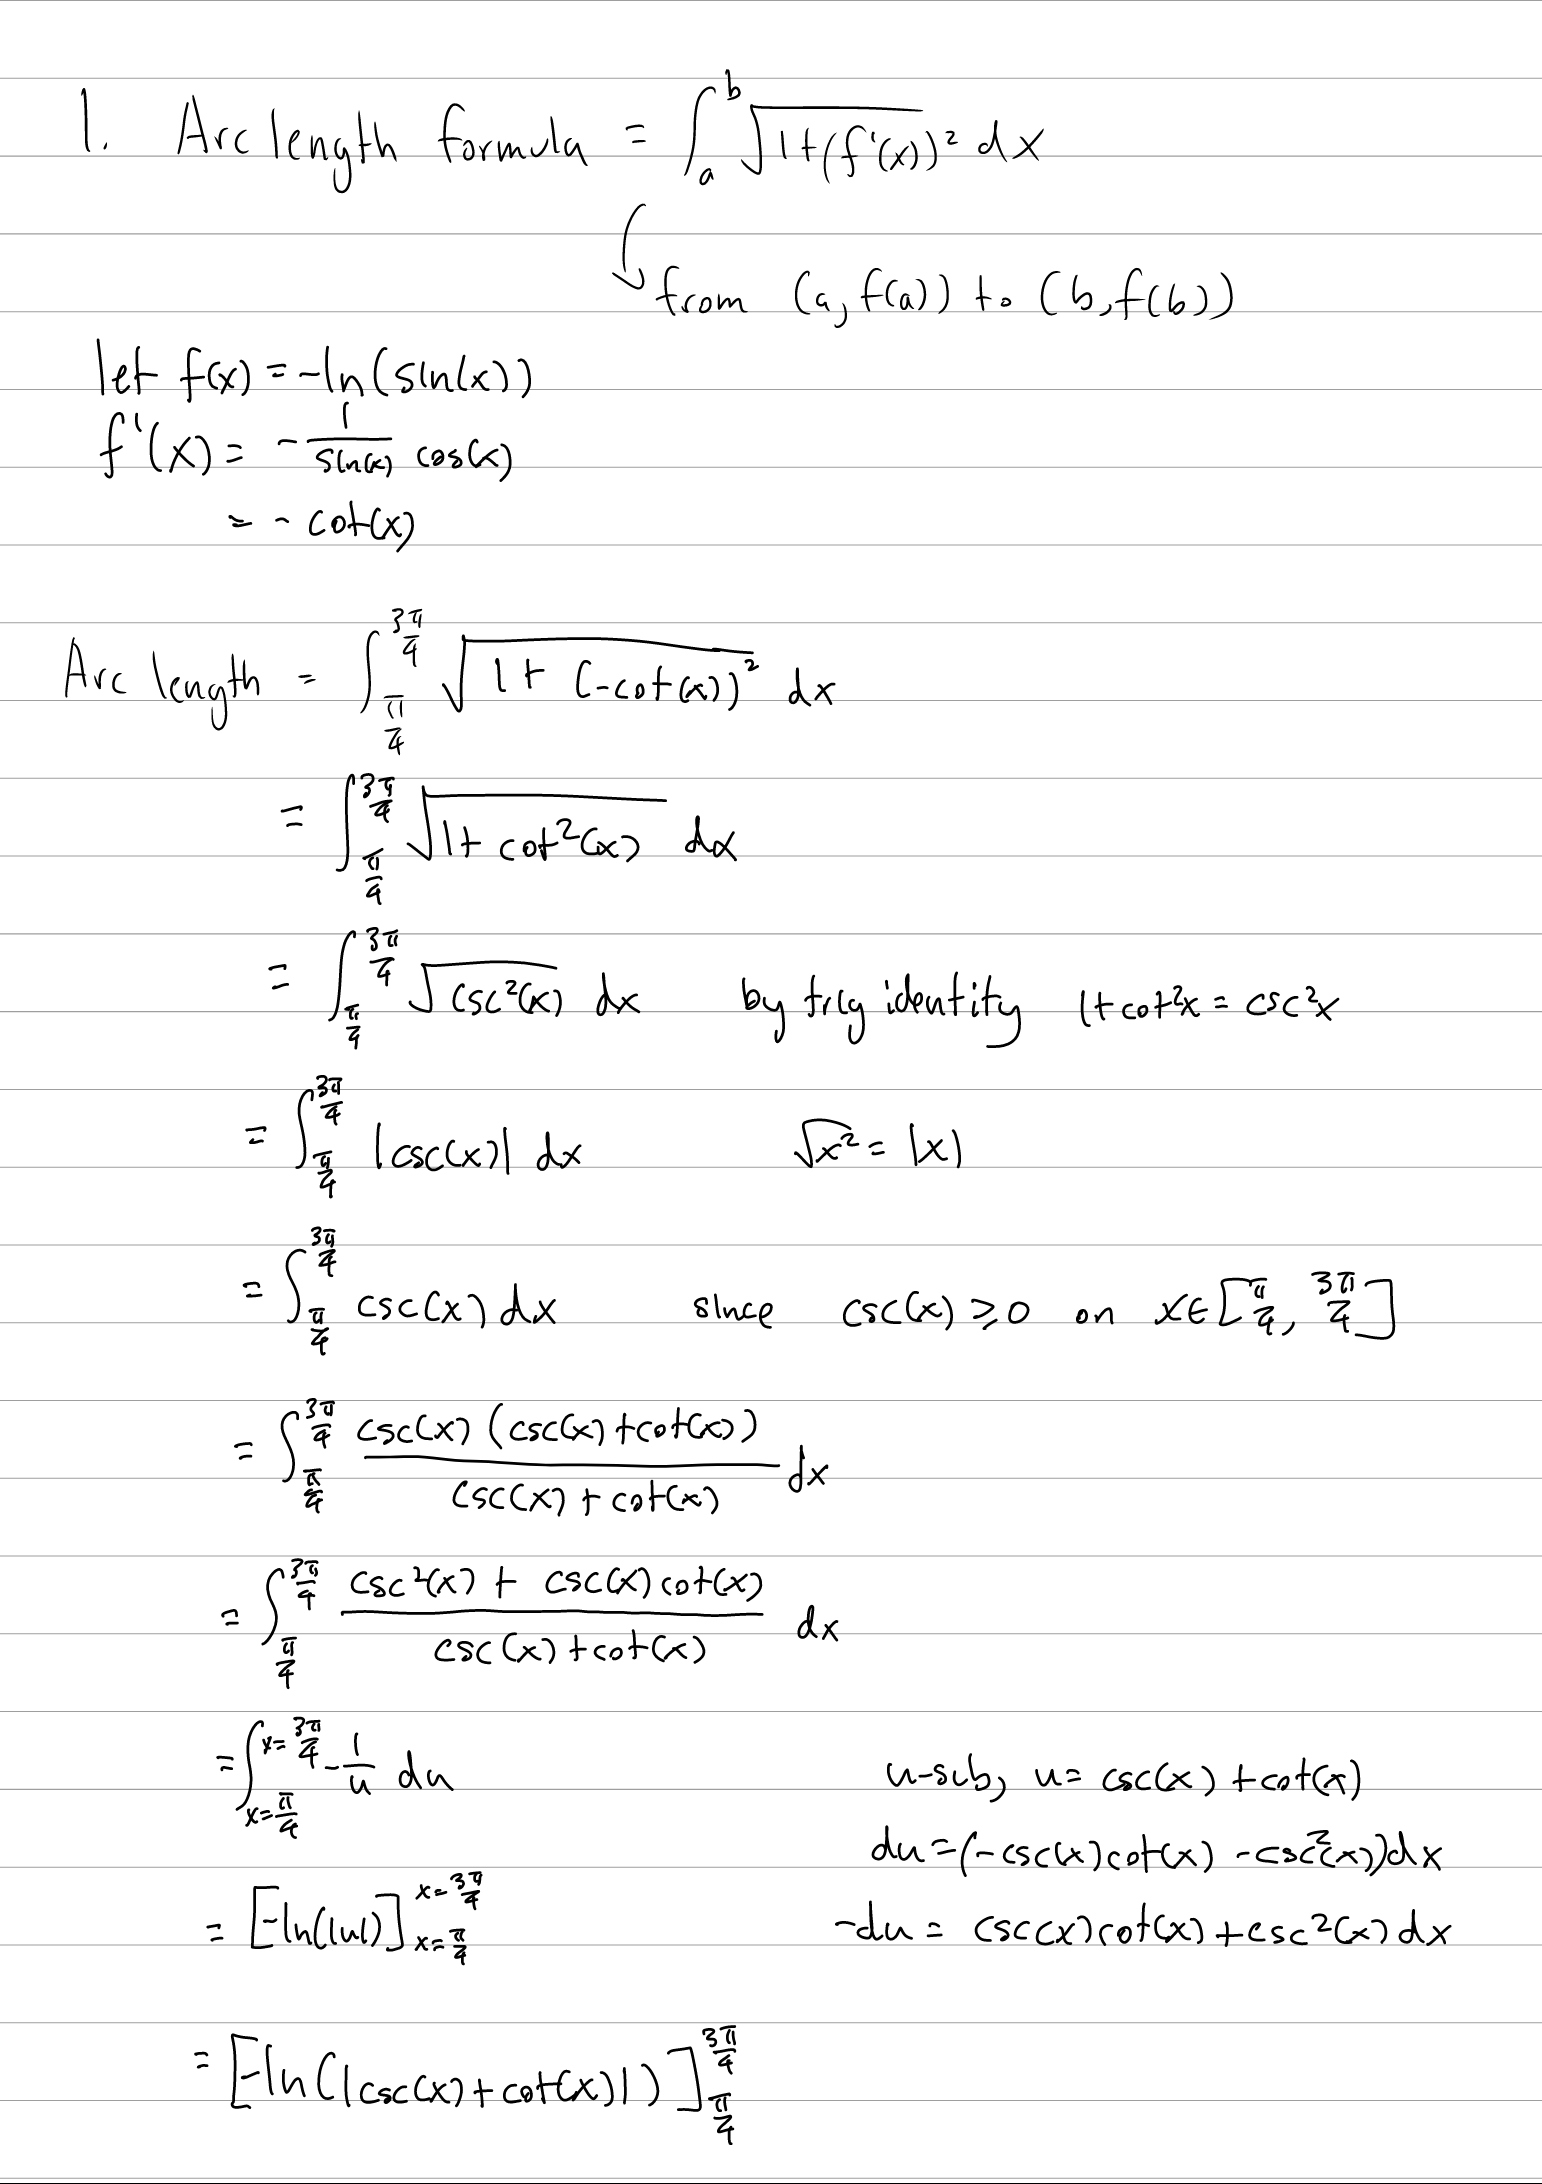 1. Arc length formula = ∫_a^b √(1+(f'(x))²) dx
from (a, f(a)) to (b, f(b))
let f(x) = -ln(sin(x))
f'(x) = -1/sin(x) cos(x)
= -cot(x)
Arc length = ∫_{π/4}^{3π/4} √(1+(-cot(x))²) dx
= ∫_{π/4}^{3π/4} √(1+cot²(x)) dx
= ∫_{π/4}^{3π/4} √(csc²(x)) dx by trig identity 1+cot²x = csc²x
= ∫_{π/4}^{3π/4} |csc(x)| dx √x² = |x|
= ∫_{π/4}^{3π/4} csc(x) dx since csc(x) ⩾ 0 on x∈[π/4, 3π/4]
= ∫_{π/4}^{3π/4} (csc(x)(csc(x)+cot(x)))/(csc(x)+cot(x)) dx
= ∫_{π/4}^{3π/4} (csc²(x) + csc(x)cot(x))/(csc(x)+cot(x)) dx
= ∫_{x=π/4}^{x=3π/4} -1/u du u-sub, u = csc(x)+cot(x)
du = (-csc(x)cot(x) - csc²(x))dx
= [-ln(|u|)]_{x=π/4}^{x=3π/4} -du = csc(x)cot(x)+csc²(x)dx
= [-ln(|csc(x)+cot(x)|)]_{π/4}^{3π/4}